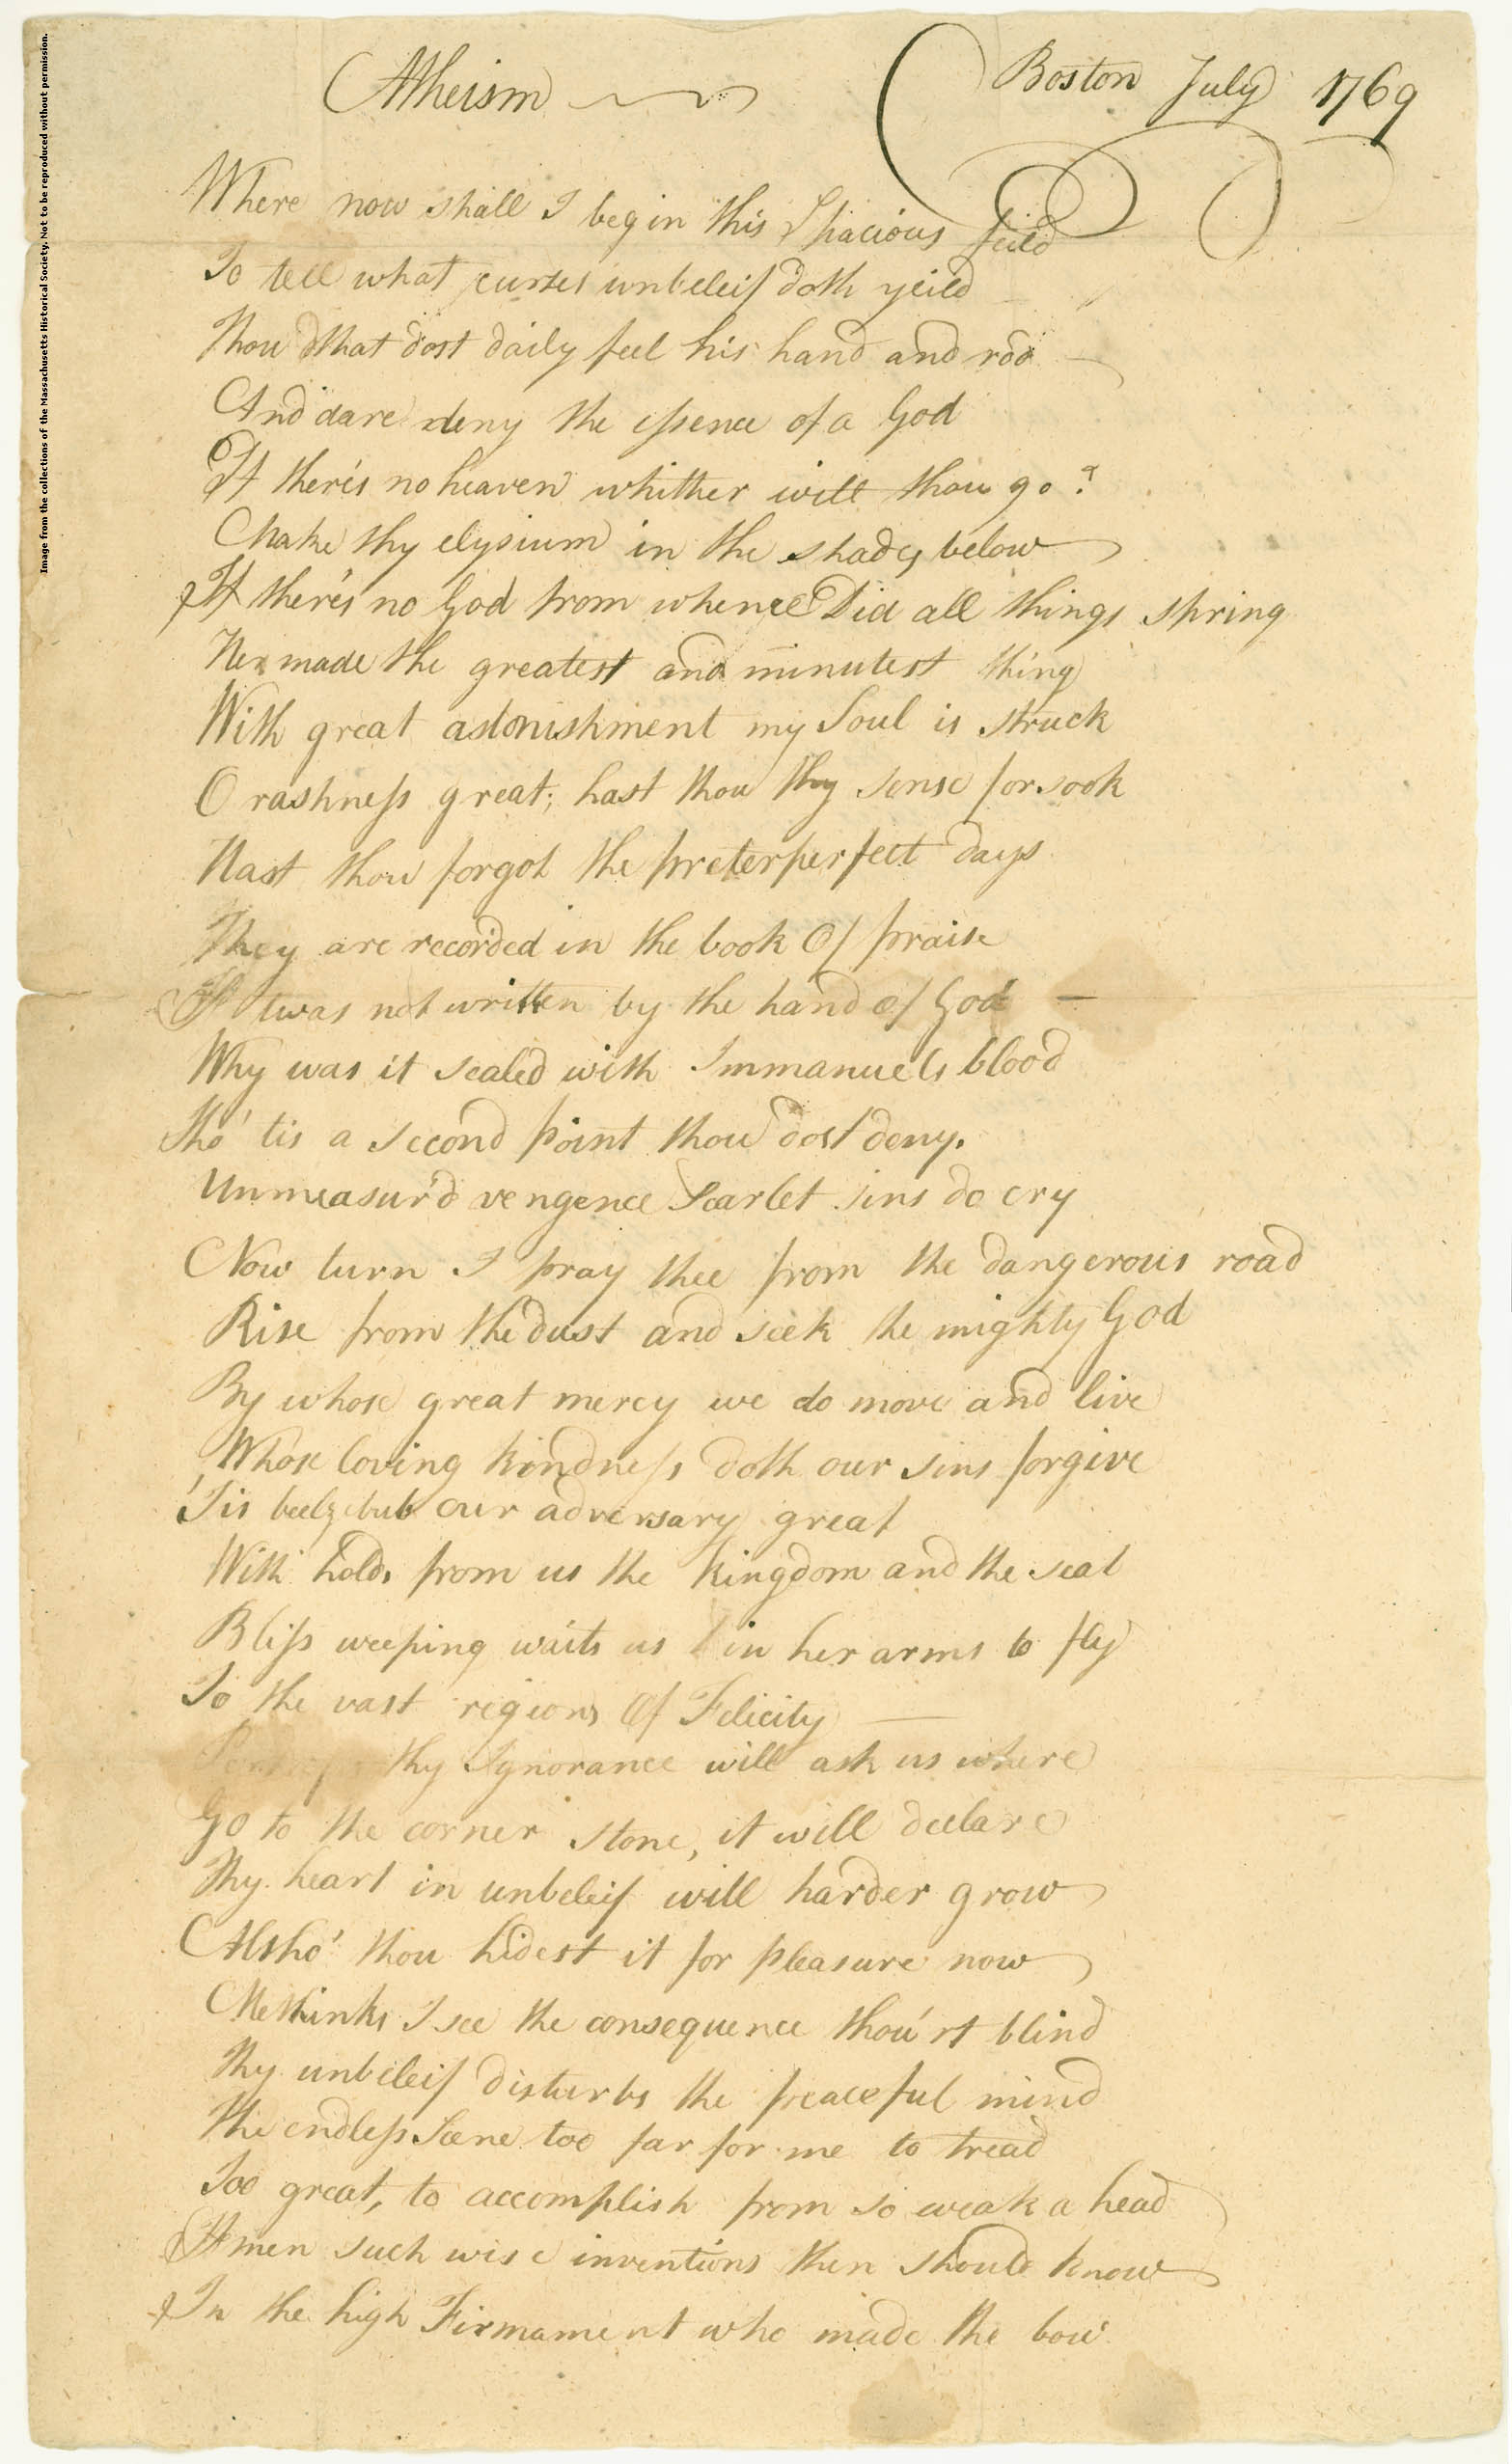 Image from the collections of the Massachusetts Historical Society. Not to be reproduced without permission.
Atheism
Boston July 1769
Where now shall I begin this Spacious feild
To tell what curses unbeleif doth yeild
Thou that dost daily feel his hand and rod
And dare deny the essence of a God
If there's no heaven whither will thou go?
Make thy elysium in the shades below
If there's no God from whence Did all things spring
He made the greatest and minutest thing
With great astonishment my Soul is struck
O rashness great; hast thou thy sense forsook
Hast thou forgot the preterperfect days
They are recorded in the book Of praise
If twas not written by the hand of God
Why was it sealed with Immanuels blood
Tho' tis a second point thou dost deny.
Unmeasur'd vengence Scarlet sins do cry
Now turn I pray thee from the dangerous road
Rise from the dust and seek the mighty God
By whose great mercy we do move and live
Whose loving kindness doth our sins forgive
'Tis beelzebub our adversary great
With holds from us the kingdom and the seat
Bliss weeping waits us in her arms to fly
To the vast regions Of Felicity
Perhaps thy Ignorance will ask us where
Go to the corner stone, it will declare
Thy heart in unbeleif will harder grow
Altho' thou hidest it for pleasure now
Methinks I see the consequence thou'rt blind
Thy unbeleif disturbs the peaceful mind
The endless Scene too far for me to tread
Too great, to accomplish from so weak a head
If men such wise inventions then should know
In the high Firmament who made the bow